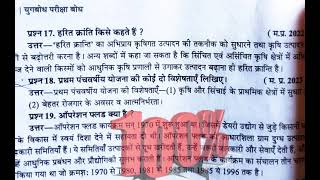 युगबोध परीक्षा बोध
प्रश्न 17. हरित क्रांति किसे कहते हैं ? ( म.प्र. 2022
उत्तर—"हरित क्रान्ति" का अभिप्राय कृषिगत उत्पादन की तकनीक को सुधारने तथा कृषि उत्पादन
से बढ़ोत्तरी करना है। अन्य शब्दों में कहा जा सकता है कि सिंचित एवं असिंचित कृषि क्षेत्रों में अधिक
देने वाली किस्मों को आधुनिक कृषि प्रणाली से उगाकर उत्पादन बढ़ाना ही हरित क्रान्ति है।
प्रश्न 18. प्रथम पंचवर्षीय योजना की कोई दो विशेषताएँ लिखिए। ( म.प्र. 2023
उत्तर—प्रथम पंचवर्षीय योजना की विशेषताएँ—(1) कृषि और सिंचाई के प्राथमिक क्षेत्रों में सुधार
(2) बेहतर रोजगार के अवसर व आत्मनिर्भरता।
प्रश्न 19. ऑपरेशन फ्लड क्या है
उत्तर—ऑपरेशन फ्लड सन् 1970 में डेयरी उद्योग से जुड़े किसानों
के विकास में स्वयं दिशा देने में सहायता दी ग्राम दुग्ध उत्पादक
सहकारी समितियाँ हैं। ये समितियाँ उत्पादकों से दूध और सेवाएँ प्रदान करती हैं,
आधुनिक प्रबंधन और प्रौद्योगिकी सुलभ कराती के कार्यक्रम का संचालन तीन चरणों
किया गया था जो क्रमशः 1970 से 1980, 1981 से 1985 तथा 1985 से 1996 तक है।